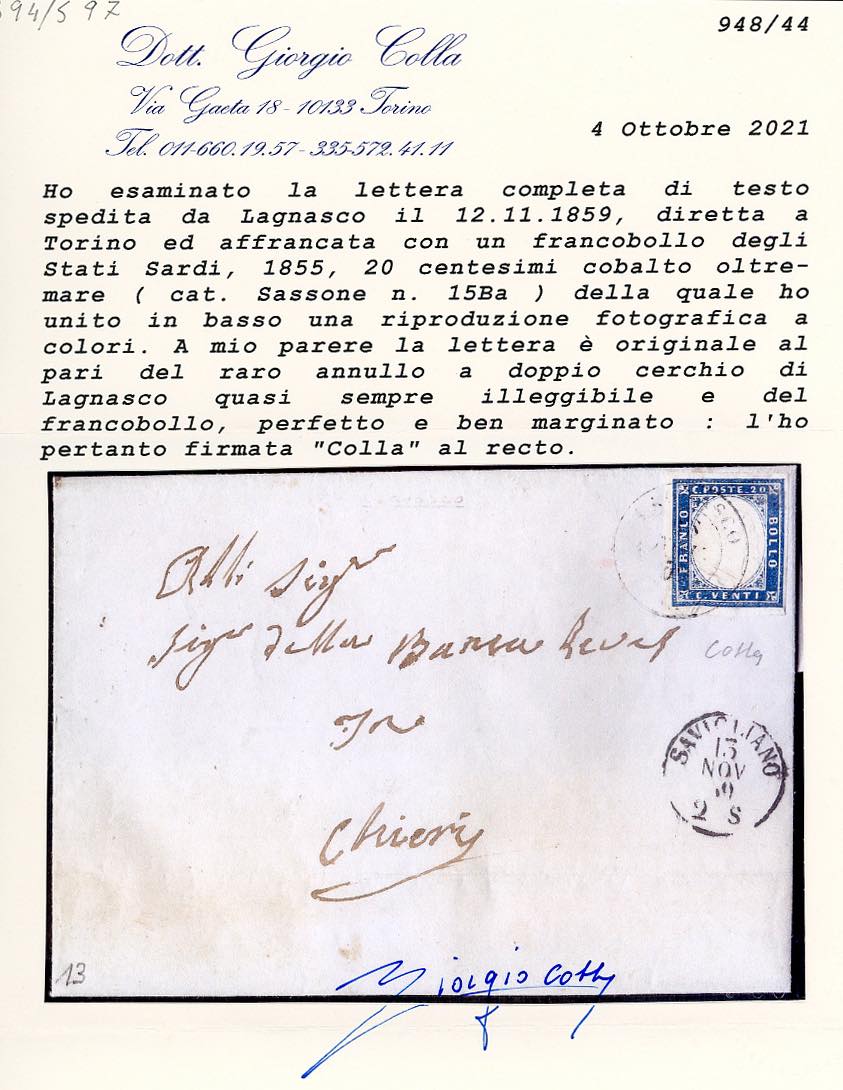 94/5 97
948/44
Dott. Giorgio Colla
Via Gaeta 18 - 10133 Torino
Tel. 011-660.19.57 - 335-572.41.11
4 Ottobre 2021
Ho esaminato la lettera completa di testo
spedita da Lagnasco il 12.11.1859, diretta a
Torino ed affrancata con un francobollo degli
Stati Sardi, 1855, 20 centesimi cobalto oltre-
mare ( cat. Sassone n. 15Ba ) della quale ho
unito in basso una riproduzione fotografica a
colori. A mio parere la lettera è originale al
pari del raro annullo a doppio cerchio di
Lagnasco quasi sempre illeggibile e del
francobollo, perfetto e ben marginato : l'ho
pertanto firmata "Colla" al recto.
C. POSTE. 20
FRANCO
BOLLO
C. VENTI
Sigri della Banca
Colla
In
Chieri
SAVIGLIANO
13
NOV
2 S
13
Giorgio Colla